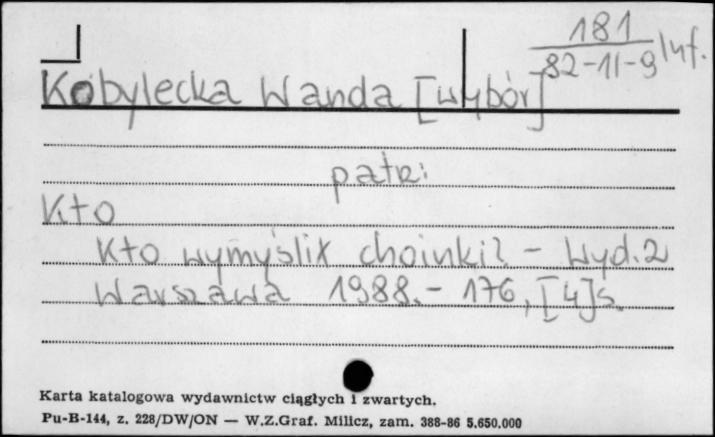 181
82-11-9 Inf.
Kobylecka Wanda [wybór]
patrz:
Kto
Kto wymyślił choinki? - Wyd. 2
Warszawa 1988. - 176, [4] s.
Karta katalogowa wydawnictw ciągłych i zwartych.
Pu-B-144, z. 228/DW/ON — W.Z.Graf. Milicz, zam. 388-86 5.650.000